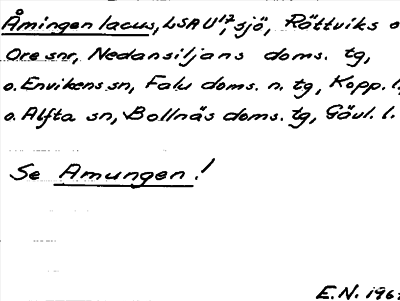 Åmingen lacus, LSA U17, sjö, Rättviks o.
Ore snr, Nedansiljans doms. tg,
o. Envikens sn, Falu doms. n. tg, Kopp. l.,
o. Alfta sn, Bollnäs doms. tg, Gävl. l.
Se Amungen!
E.N. 196